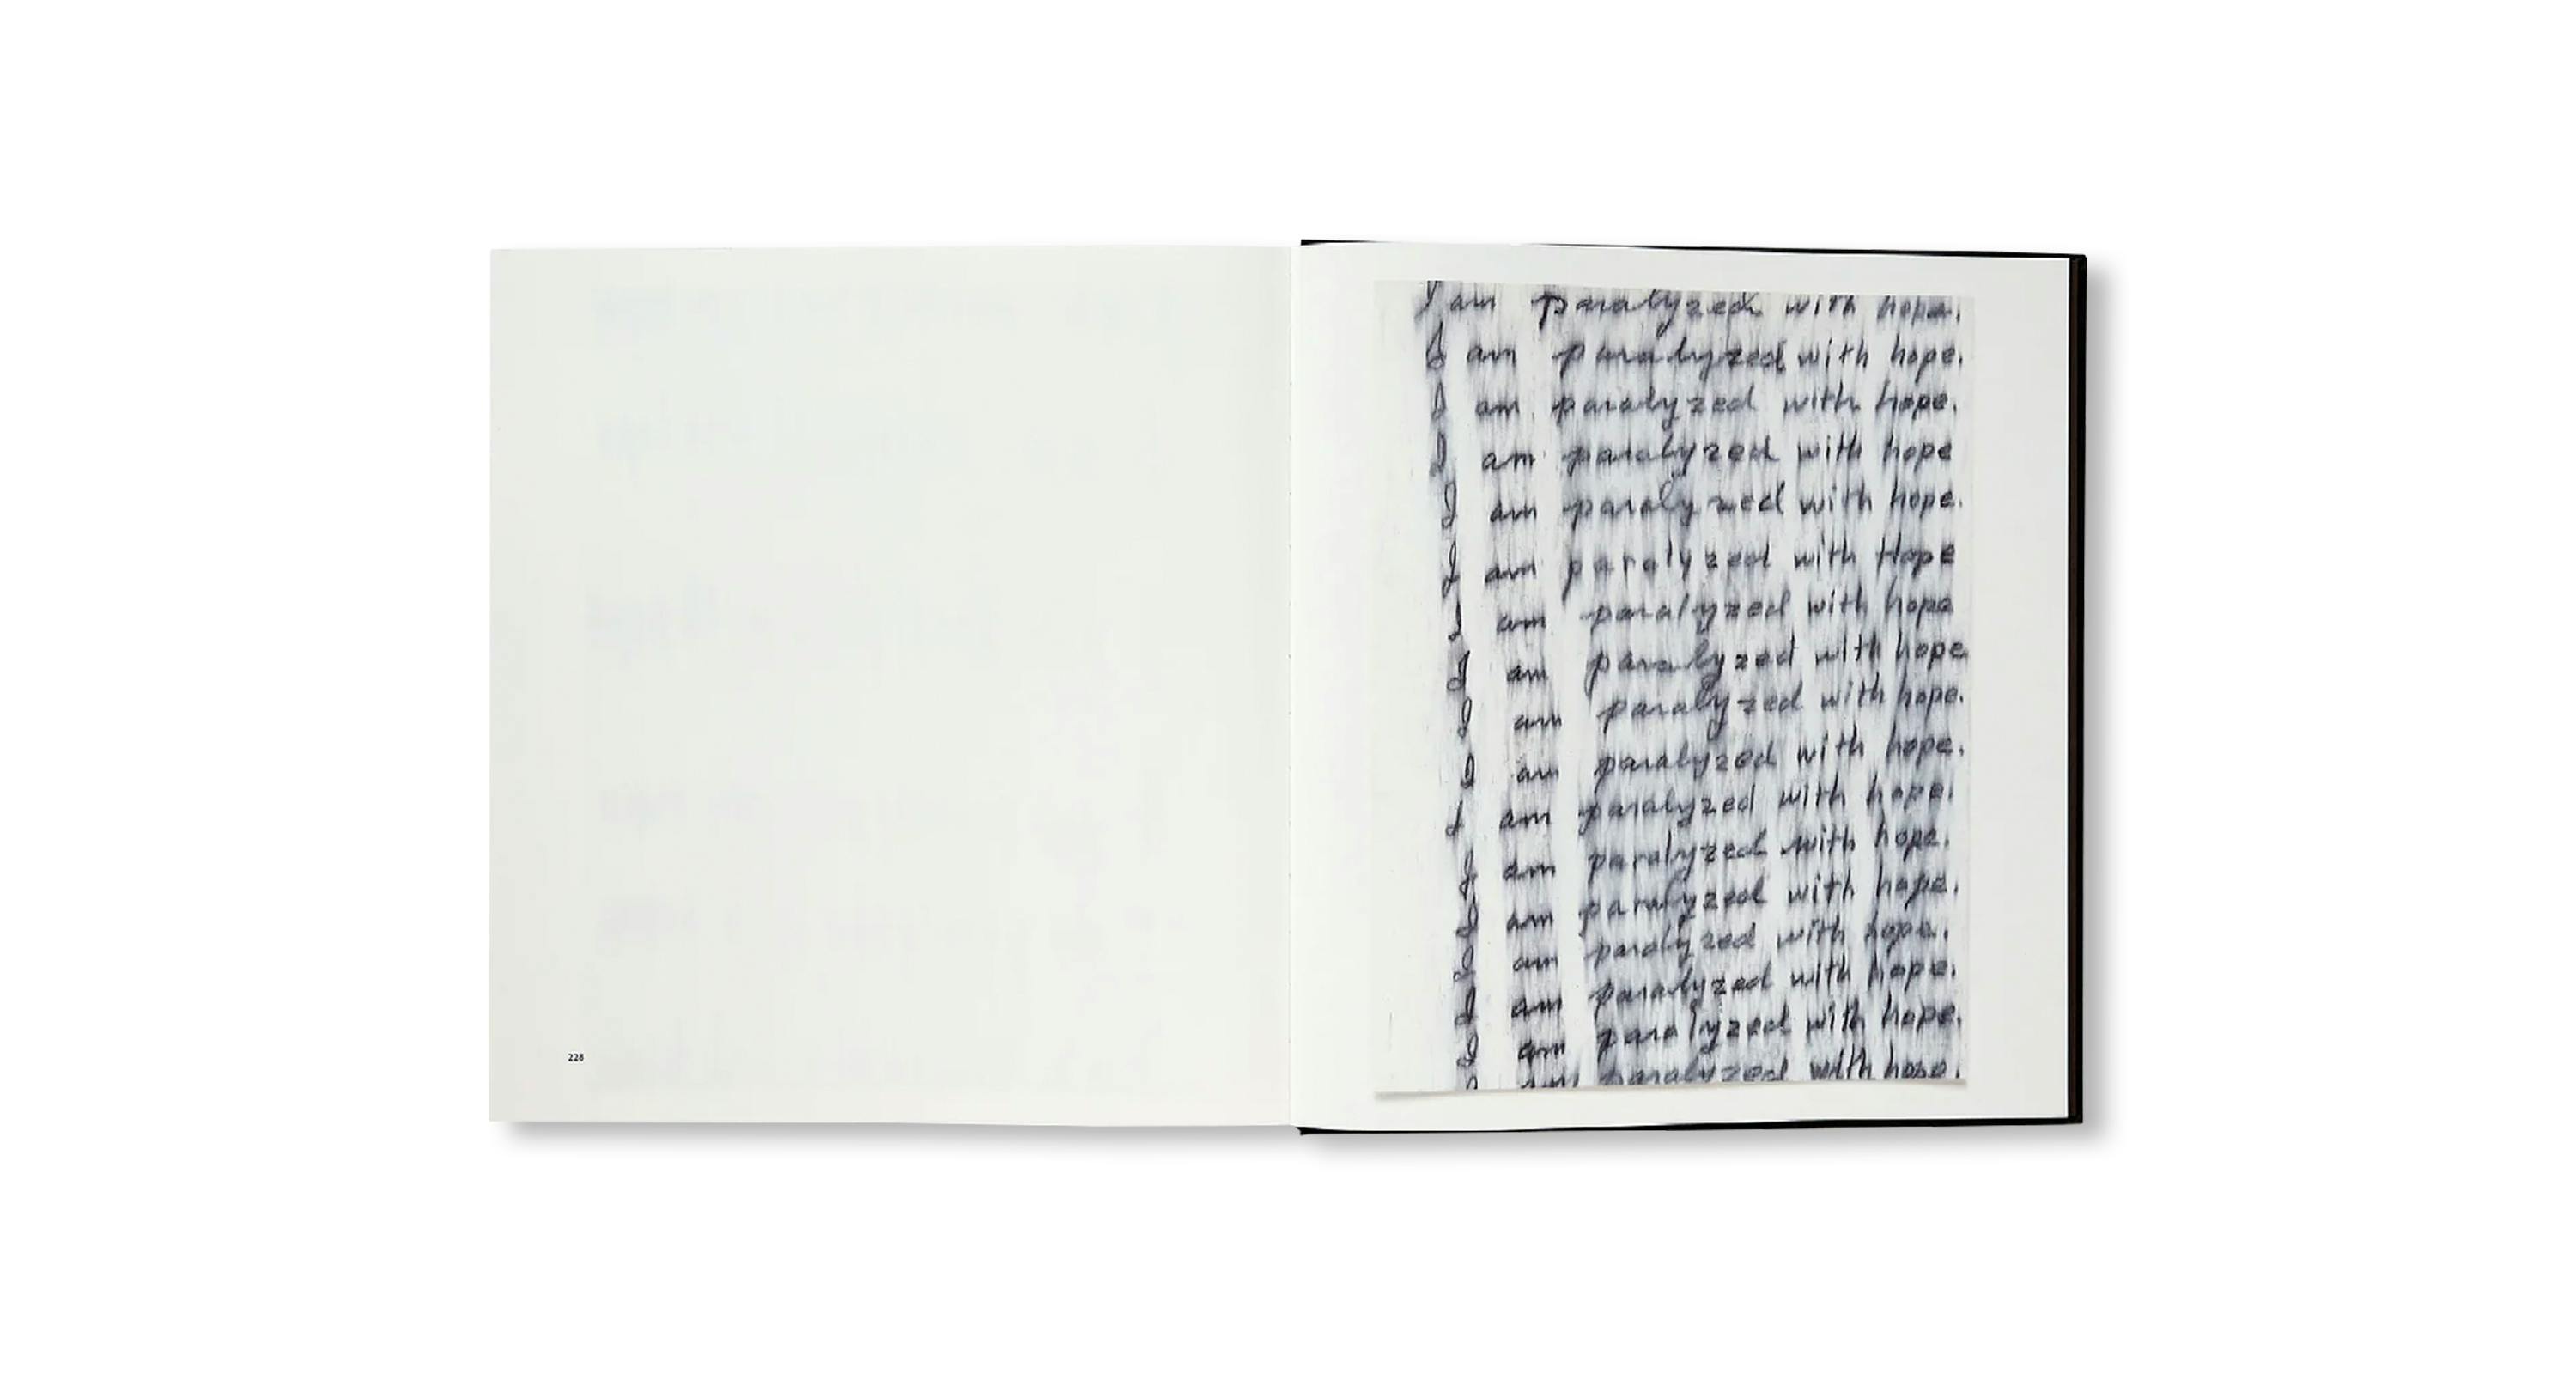 228
I am paralyzed with hope.
I am paralyzed with hope.
I am paralyzed with hope.
I am paralyzed with hope
I am paralyzed with hope.
I am paralyzed with Hope
I am paralyzed with hope
I am paralyzed with hope
I am paralyzed with hope.
I am paralyzed with hope.
I am paralyzed with hope.
I am paralyzed with hope.
I am paralyzed with hope.
I am paralyzed with hope.
I am paralyzed with hope.
I am paralyzed with hope.
I am paralyzed with hope.